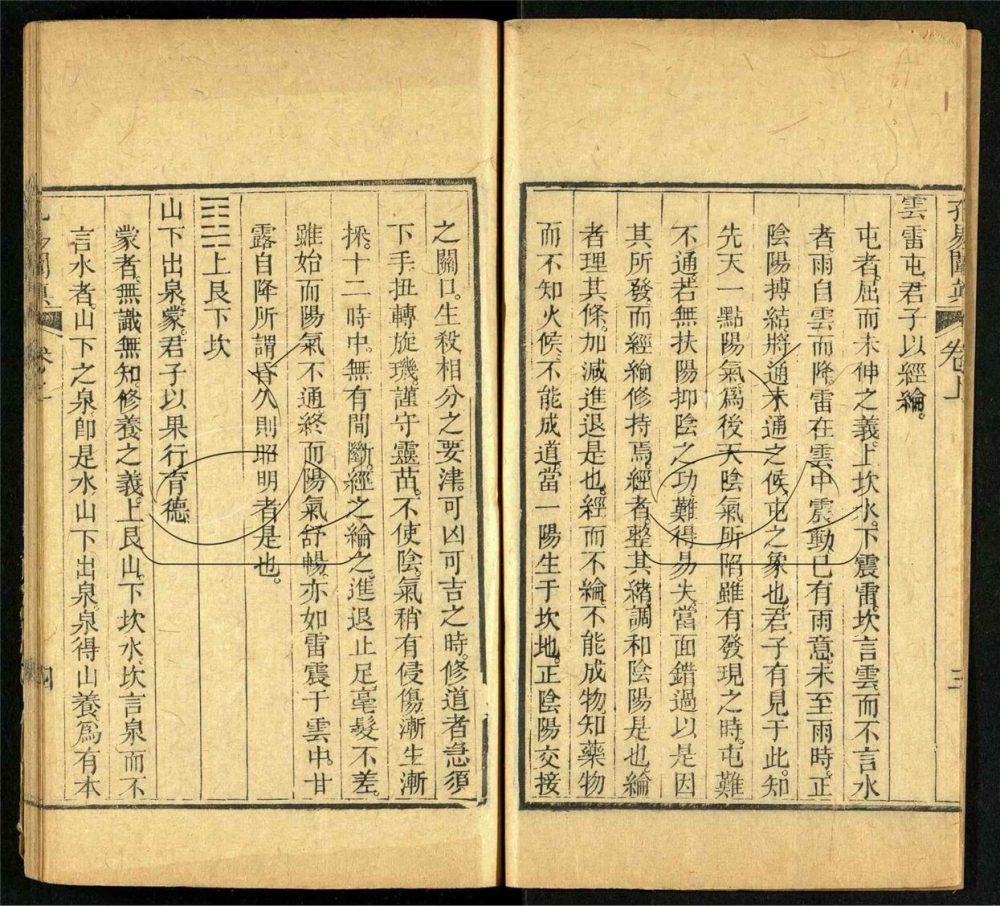 孔易闡真 卷上 三
雲雷屯君子以經綸。
屯者屈而未伸之義上坎水下震雷坎言雲而不言水
者雨自雲而降雷在雲中震動已有雨意未至雨時正
陰陽搏結將通未通之候屯之象也君子有見于此知
先天一點陽氣爲後天陰氣所陷雖有發現之時屯難
不通若無扶陽抑陰之功難得易失當面錯過以是因
其所發而經綸修持焉經者整其緒調和陰陽是也綸
者理其條加減進退是也經而不綸不能成物知藥物
而不知火候不能成道當一陽生于坎地正陰陽交接
之關口生殺相分之要津可凶可吉之時修道者急須
下手扭轉旋璣謹守靈苗不使陰氣稍有侵傷漸生漸
採十二時中無有間斷經之綸之進退止足毫髮不差
雖始而陽氣不通終而陽氣舒暢亦如雷震于雲中甘
露自降所謂昏久則昭明者是也。
上艮下坎
山下出泉蒙君子以果行育德
蒙者無識無知修養之義上艮山下坎水坎言泉而不
言水者山下之泉卽是水山下出泉泉得山養爲有本
四